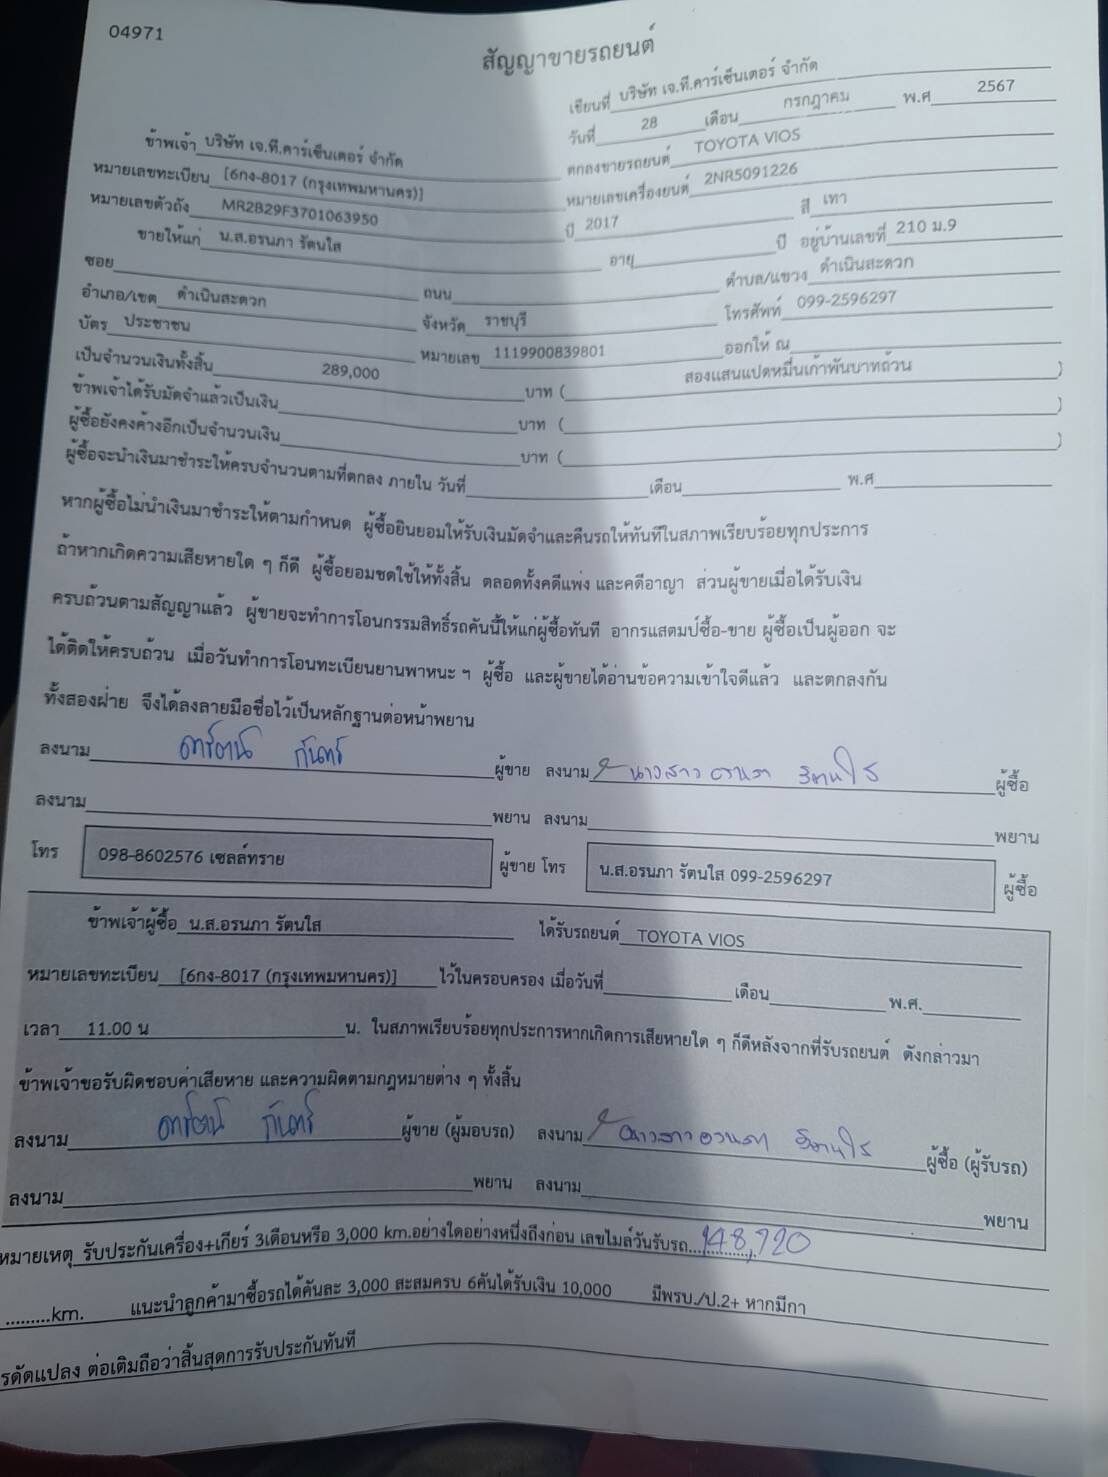 04971
สัญญาขายรถยนต์
เขียนที่ บริษัท เจ.ที.คาร์เซ็นเตอร์ จำกัด
วันที่ 28 เดือน กรกฎาคม พ.ศ 2567
ข้าพเจ้า บริษัท เจ.ที.คาร์เซ็นเตอร์ จำกัด ตกลงขายรถยนต์ TOYOTA VIOS
หมายเลขทะเบียน [6กง-8017 (กรุงเทพมหานคร)] หมายเลขเครื่องยนต์ 2NR5091226
หมายเลขตัวถัง MR2B29F3701063950 ปี 2017 สี เทา
ขายให้แก่ น.ส.อรนภา รัตนใส อายุ ปี อยู่บ้านเลขที่ 210 ม.9
ซอย ถนน ตำบล/แขวง ดำเนินสะดวก
อำเภอ/เขต ดำเนินสะดวก จังหวัด ราชบุรี โทรศัพท์ 099-2596297
บัตร ประชาชน หมายเลข 1119900839801 ออกให้ ณ
เป็นจำนวนเงินทั้งสิ้น 289,000 บาท ( สองแสนแปดหมื่นเก้าพันบาทถ้วน )
ข้าพเจ้าได้รับมัดจำแล้วเป็นเงิน บาท ( )
ผู้ซื้อยังคงค้างอีกเป็นจำนวนเงิน บาท ( )
ผู้ซื้อจะนำเงินมาชำระให้ครบจำนวนตามที่ตกลง ภายใน วันที่ เดือน พ.ศ
หากผู้ซื้อไม่นำเงินมาชำระให้ตามกำหนด ผู้ซื้อยินยอมให้รับเงินมัดจำและคืนรถให้ทันทีในสภาพเรียบร้อยทุกประการ
ถ้าหากเกิดความเสียหายใด ๆ ก็ดี ผู้ซื้อยอมชดใช้ให้ทั้งสิ้น ตลอดทั้งคดีแพ่ง และคดีอาญา ส่วนผู้ขายเมื่อได้รับเงิน
ครบถ้วนตามสัญญาแล้ว ผู้ขายจะทำการโอนกรรมสิทธิ์รถคันนี้ให้แก่ผู้ซื้อทันที อากรแสตมป์ซื้อ-ขาย ผู้ซื้อเป็นผู้ออก จะ
ได้ติดให้ครบถ้วน เมื่อวันทำการโอนทะเบียนยานพาหนะ ฯ ผู้ซื้อ และผู้ขายได้อ่านข้อความเข้าใจดีแล้ว และตกลงกัน
ทั้งสองฝ่าย จึงได้ลงลายมือชื่อไว้เป็นหลักฐานต่อหน้าพยาน
ลงนาม ผู้ขาย ลงนาม นางสาว อรนภา รัตนใส ผู้ซื้อ
ลงนาม พยาน ลงนาม พยาน
โทร 098-8602576 เซลล์ทราย ผู้ขาย โทร น.ส.อรนภา รัตนใส 099-2596297 ผู้ซื้อ
ข้าพเจ้าผู้ซื้อ น.ส.อรนภา รัตนใส ได้รับรถยนต์ TOYOTA VIOS
หมายเลขทะเบียน [6กง-8017 (กรุงเทพมหานคร)] ไว้ในครอบครอง เมื่อวันที่ เดือน พ.ศ.
เวลา 11.00 น น. ในสภาพเรียบร้อยทุกประการหากเกิดการเสียหายใด ๆ ก็ดีหลังจากที่รับรถยนต์ ดังกล่าวมา
ข้าพเจ้าขอรับผิดชอบค่าเสียหาย และความผิดตามกฎหมายต่าง ๆ ทั้งสิ้น
ลงนาม ผู้ขาย (ผู้มอบรถ) ลงนาม นางสาว อรนภา รัตนใส ผู้ซื้อ (ผู้รับรถ)
ลงนาม พยาน ลงนาม พยาน
หมายเหตุ รับประกันเครื่อง+เกียร์ 3เดือนหรือ 3,000 km.อย่างใดอย่างหนึ่งถึงก่อน เลขไมล์วันรับรถ 148,720
.........km. แนะนำลูกค้ามาซื้อรถได้คันละ 3,000 สะสมครบ 6คันได้รับเงิน 10,000 มีพรบ./ป.2+ หากมีกา
รดัดแปลง ต่อเติมถือว่าสิ้นสุดการรับประกันทันที